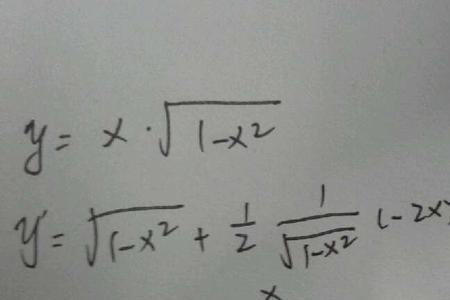 y = x · √(1-x²)
y' = √(1-x²) + 1/2 1/√(1-x²) (-2x)
x